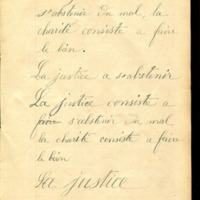 s'abstenir du mal, la
charité consiste a faire
le bien.
La justice a s'abstenir
La justice consiste a
faire s'abstenir du mal
la charité consiste a faire
le bien
La justice